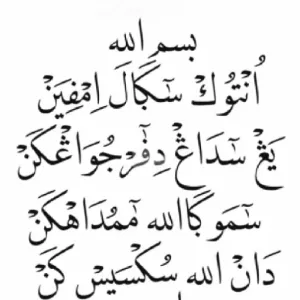 بسم الله
اُنْتُوْكْ سݢَالَ اِمْفِيَنْ
يَڠْ سَداڠْ دِفَرْجُوَاڠْكَنْ
سَموݢَاالله مَمُدَاهْكَنْ
دَانْ الله سُكْسَيِسْ كَنْ